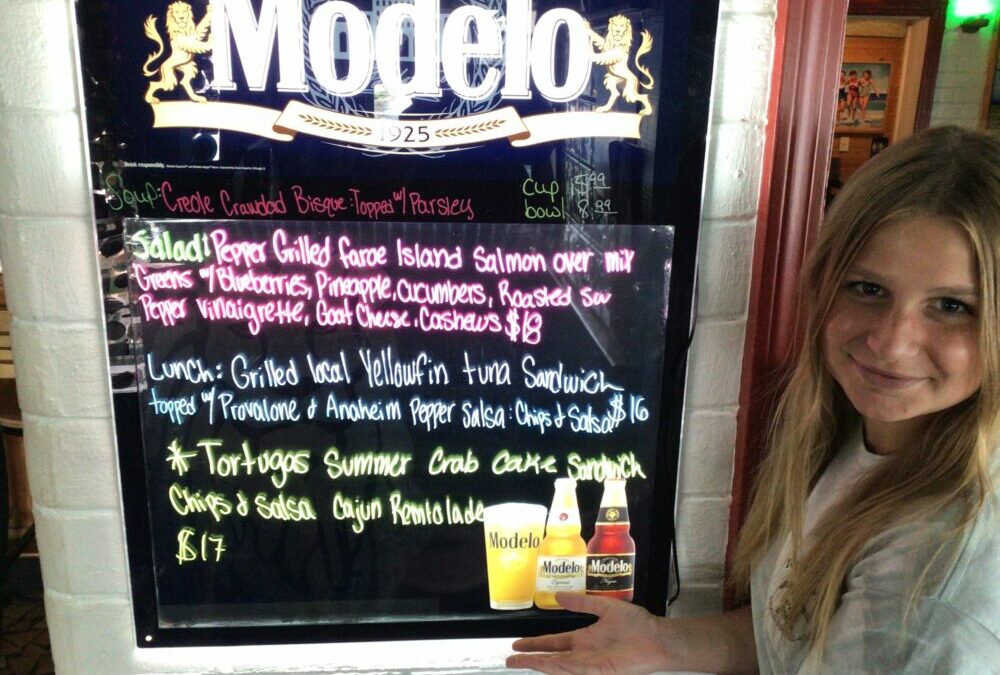 Modelo
1925
Drink responsibly.
Soup: Creole Crawdad Bisque: Topped w/ Parsley
cup 5.99
bowl 8.99
Salad: Pepper Grilled Faroe Island Salmon over mix
Greens w/ Blueberries, Pineapple, cucumbers, Roasted
Pepper vinaigrette, Goat Cheese, Cashews $18
Lunch: Grilled local Yellowfin tuna Sandwich
topped w/ Provalone & Anaheim Pepper Salsa: Chips & Salsa $16
* Tortugas Summer Crab Cake Sandwich
Chips & Salsa Cajun Remlolade
$17
Modelo
Modelo
Especial
Modelo
Negra